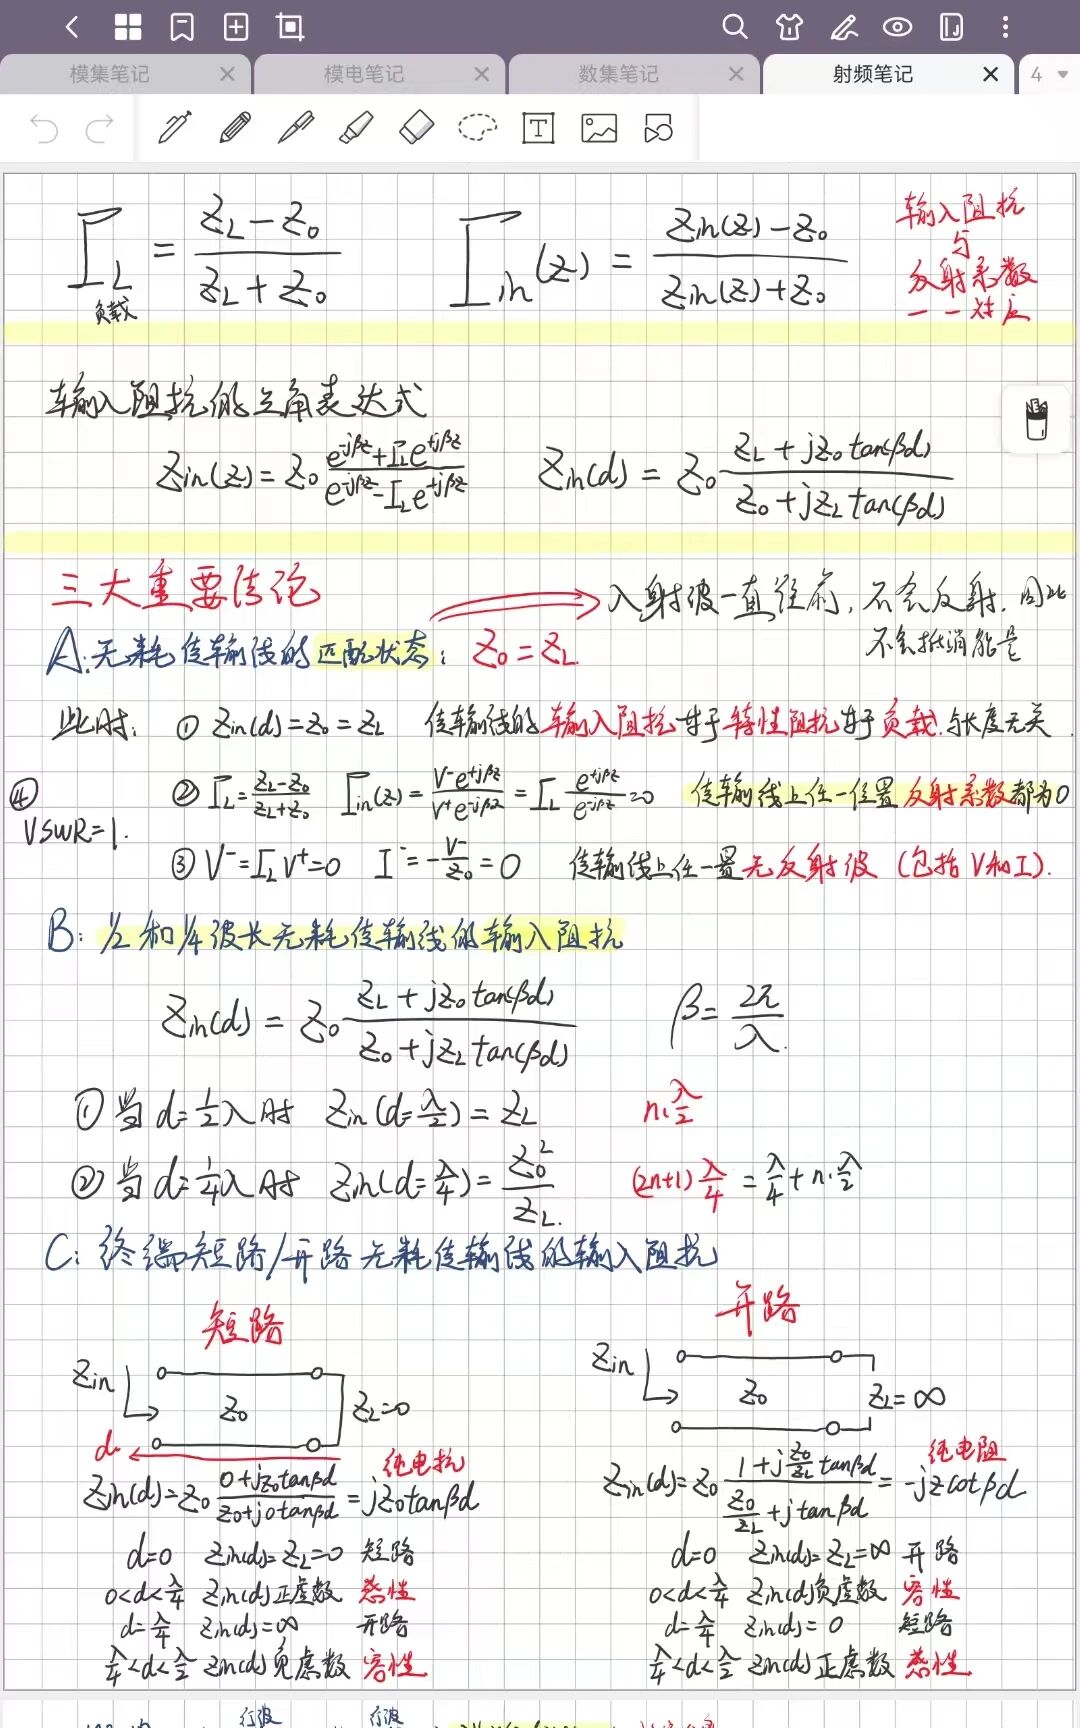 模集笔记 模电笔记 数集笔记 射频笔记 4
Γ_L = (Z_L - Z_0)/(Z_L + Z_0) Γ_in(z) = (Z_in(z) - Z_0)/(Z_in(z) + Z_0)
负载
输入阻抗
与
反射系数
一一对应
输入阻抗的三角表达式
Z_in(z) = Z_0 (e^{-jβz} + Γ_L e^{+jβz})/(e^{-jβz} - Γ_L e^{+jβz}) Z_in(d) = Z_0 (Z_L + jZ_0 tan(βd))/(Z_0 + jZ_L tan(βd))
三大重要结论
入射波一直往前, 不会反射. 因此
不会抵消能量
A: 无耗传输线的匹配状态: Z_0 = Z_L.
此时: ① Z_in(d) = Z_0 = Z_L 传输线的输入阻抗等于特性阻抗等于负载. 与长度无关.
② Γ_L = (Z_L - Z_0)/(Z_L + Z_0) Γ_in(z) = (V^- e^{+jβz})/(V^+ e^{-jβz}) = Γ_L e^{+jβz}/e^{-jβz} = 0 传输线上任一位置反射系数都为0
④ VSWR = 1.
③ V^- = Γ_L V^+ = 0 I^- = -V^-/Z_0 = 0 传输线上任一置无反射波 (包括V和I).
B: 1/2 和 1/4 波长无耗传输线的输入阻抗
Z_in(d) = Z_0 (Z_L + jZ_0 tan(βd))/(Z_0 + jZ_L tan(βd)) β = 2π/λ.
① 当 d = 1/2 λ 时 Z_in(d = λ/2) = Z_L n·λ/2
② 当 d = 1/4 λ 时 Z_in(d = λ/4) = Z_0^2/Z_L. (2n+1) λ/4 = λ/4 + n·λ/2
C: 终端短路/开路无耗传输线的输入阻抗
短路
Z_in Z_0 Z_L = 0
d
纯电抗
Z_in(d) = Z_0 (0 + jZ_0 tanβd)/(Z_0 + j0 tanβd) = jZ_0 tanβd
d = 0 Z_in(d) = Z_L = 0 短路
0 < d < λ/4 Z_in(d) 正虚数 感性
d = λ/4 Z_in(d) = ∞ 开路
λ/4 < d < λ/2 Z_in(d) 负虚数 容性
开路
Z_in Z_0 Z_L = ∞
纯电阻
Z_in(d) = Z_0 (1 + j(Z_0/Z_L) tanβd)/(Z_0/Z_L + j tanβd) = -jZ cotβd
d = 0 Z_in(d) = Z_L = ∞ 开路
0 < d < λ/4 Z_in(d) 负虚数 容性
d = λ/4 Z_in(d) = 0 短路
λ/4 < d < λ/2 Z_in(d) 正虚数 感性
行波 行波